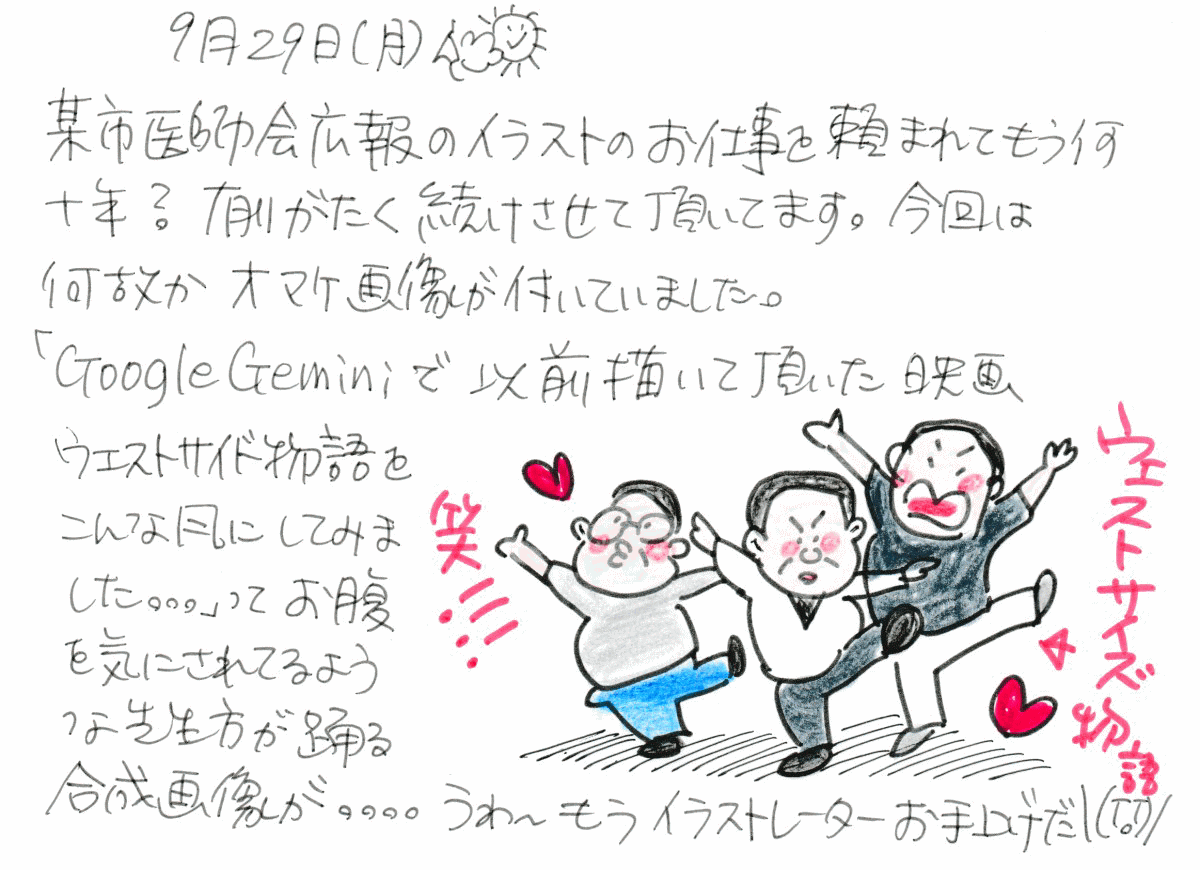 9月29日(月)
某市医師会広報のイラストのお仕事を頼まれてもう何
十年?有難がたく続けさせて頂いてます。今回は
何故かオマケ画像が付いていました。
「Google Geminiで以前描いて頂いた映画
ウエストサイド物語を
こんな風にしてみま
した。。。」ってお腹
を気にされてるよう
な先生方が踊る
合成画像が。。。。うわ~もうイラストレーターお手上げだ\(T.T)/
笑!!!
ウェストサイズ物語